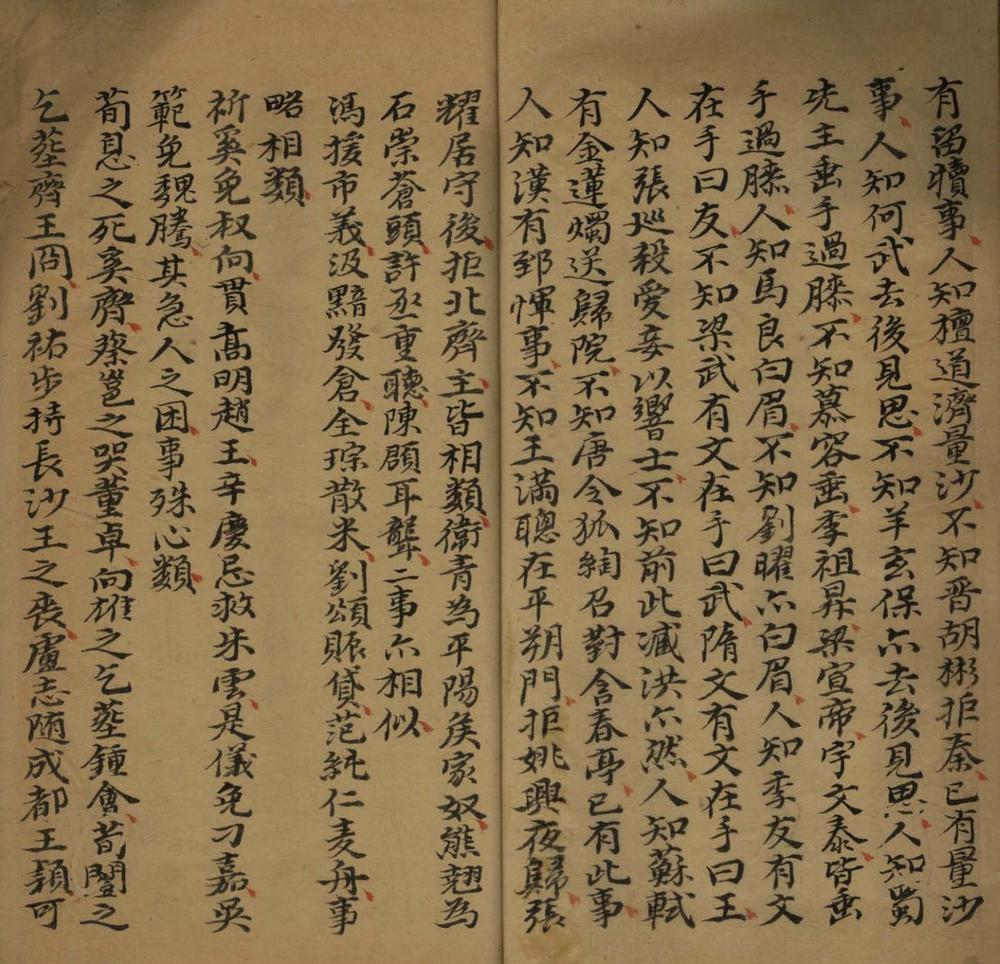 有留犢事人知檀道濟量沙不知晋胡彬拒秦已有量沙
事人知何武去後見思不知羊玄保亦去後見思人知蜀
先主垂手過膝不知慕容垂李祖昇梁宣帝宇文泰皆垂
手過膝人知馬良白眉不知劉曜亦白眉人知季友有文
在手曰友不知梁武有文在手曰武隋文有文在手曰王
人知張巡殺愛妾以饗士不知前此臧洪亦然人知蘇軾
有金蓮燭送歸院不知唐令狐綯召對含春亭已有此事
人知漢有郅惲事不知王滿聰在平朔門拒姚興夜歸張
耀居守後拒北齊主皆相類衛青為平陽侯家奴熊翹為
石崇蒼頭許丞重聽陳頋耳聾二事亦相似
馮援市義汲黯發倉全琮散米劉頌賑貸范純仁麦舟事
略相類
祈奚免叔向貫高明趙王辛慶忌救朱雲是儀免刁嘉吳
範免魏騰其急人之困事殊心類
荀息之死奚齊蔡邕之哭董卓向雄之乞塟鍾會荀闓之
乞塟齊王冏劉祐步持長沙王之喪盧志随成都王穎可